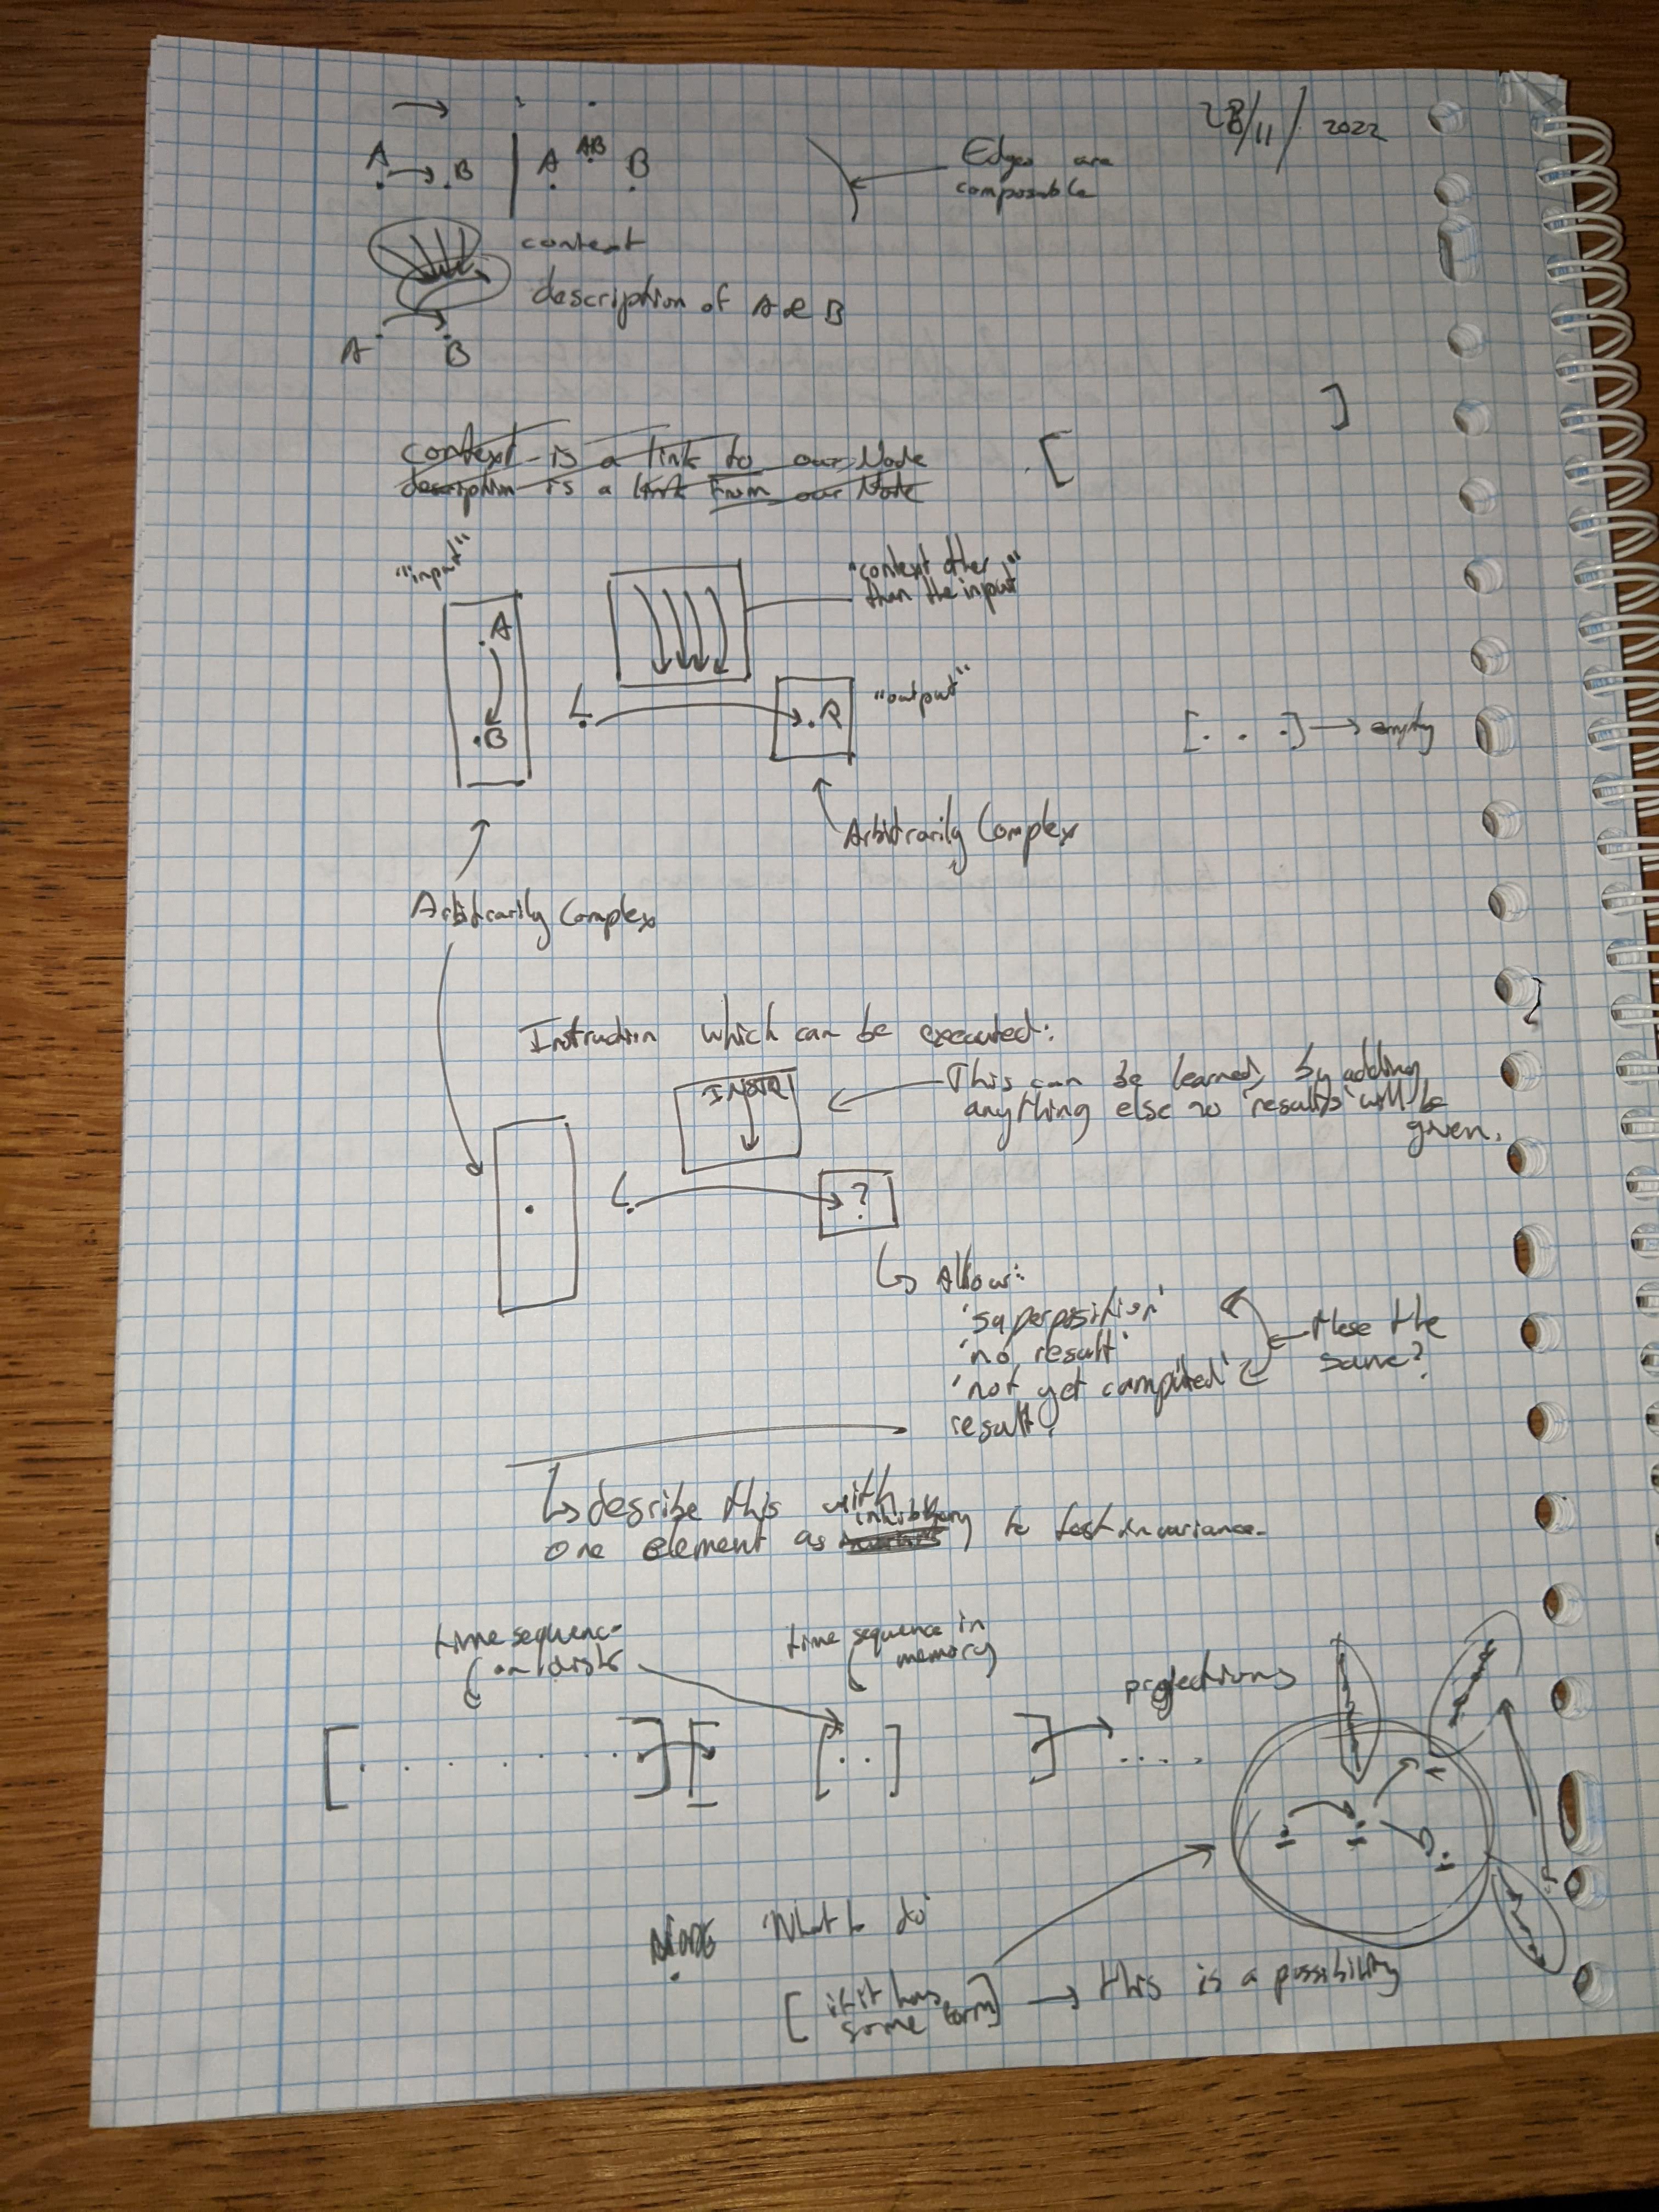 28/11/2022
A B | A AB B
Edges are
composable
context
description of A & B
A B
context is a link to our Node
description is a link from our Node
"input"
"context other
than the input"
A
B
R
"output"
[. . .] → empty
Arbitrarily Complex
Arbitrarily Complex
Intruction which can be executed:
INSTR
This can be learned, by adding
anything else no 'results' will be
given.
?
Allow:
'superposition'
'no result'
'not yet computed'
result
these the
same?
describe this with
one element as inhibitory to test invariance.
time sequence
on disk
time sequence in
memory
projections
NODE 'What to do'
[if it has
some form] → this is a possibility